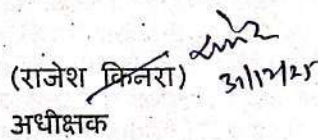 (राजेश किनरा)
31/12/25
अधीक्षक